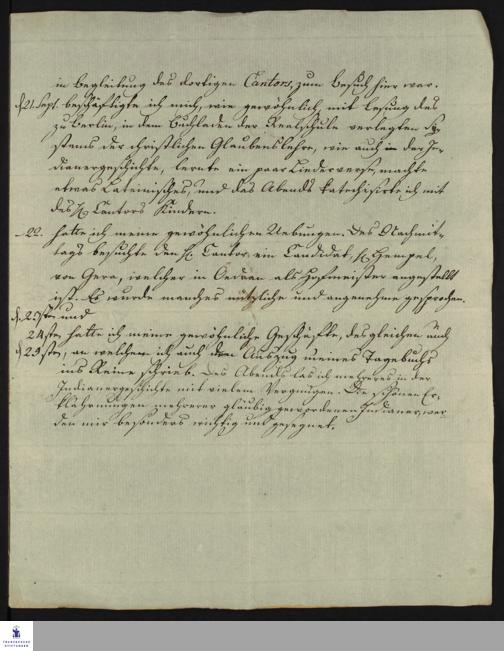 in Begleitung des dortigen Cantors, zum Besuch hier war.
d. 21. Sept. beschäftigte ich mich, wie gewöhnlich, mit Lesung des
zu Berlin, in dem Buchladen der Realschule verlegten Sy-
stems der christlichen Glaubenslehre, wie auch in der In-
dianergeschichte, lernte ein paar Liederverse, machte
etwas Lateinisches, und des Abends katechisirte ich mit
des H. Cantors Kindern.
– 22. hatte ich meine gewöhnlichen Uebungen. Des Nachmit-
tags besuchte den H. Cantor ein Candidat, H. Hempel,
von Gera, welcher in Oedran als Hofmeister angestellt
ist. Es wurde manches nützliche und angenehme gesprochen.
d. 23sten und
24sten hatte ich meine gewöhnliche Geschäfte, des gleichen auch
d. 25sten, an welchem ich auch den Auszug meines Tagebuchs
ins Reine schrieb. Des Abends las ich mehreres in der
Indianergeschichte mit vielem Vergnügen. Die schönen Er-
klährungen mehrerer gläubig gewordenen Indianer, wur-
den mir besonders wichtig und gesegnet.
FRANCKESCHE
STIFTUNGEN